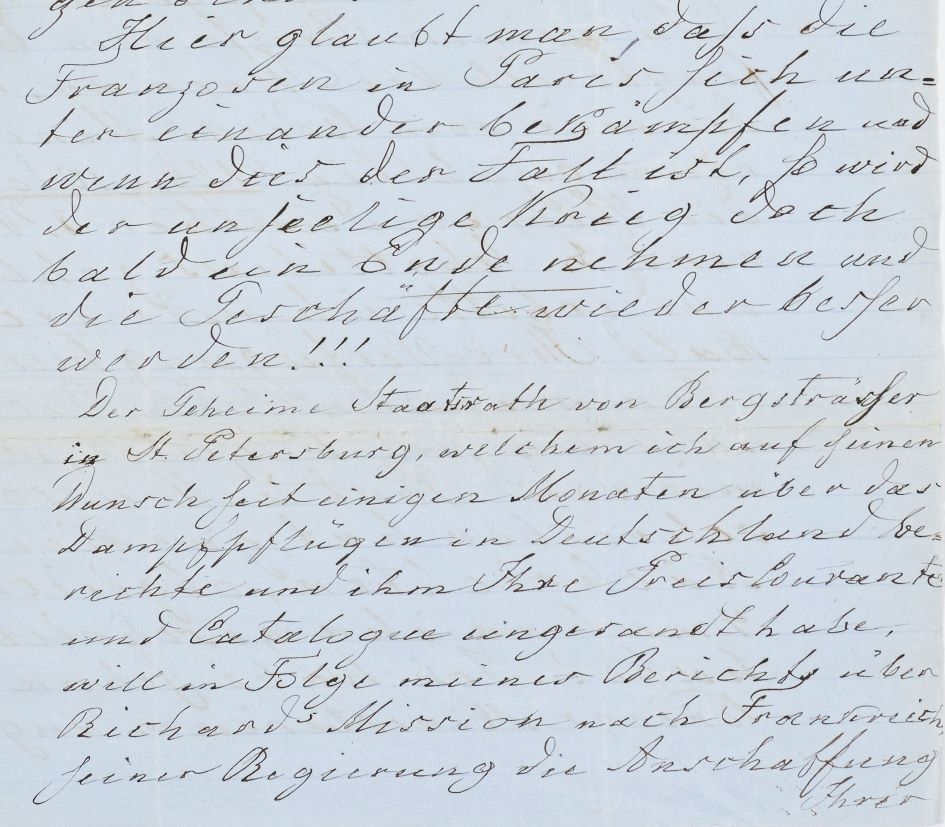 Hier glaubt man, daſs die
Franzosen in Paris sich un-
ter einander bekämpfen und
wenn dies der Fall ist, so wird
der unseelige Krieg doch
bald ein Ende nehmen und
die Geschäfte wieder besser
werden!!!
Der Geheime Staatsrath von Bergsträsser
in St. Petersburg, welchem ich auf seinen
Wunsch seit einigen Monaten über das
Dampfpflügen in Deutschland be-
richte und ihm Ihre Preis Courante
und Catalogue eingesandt habe,
will in Folge meines Berichts über
Richards Mission nach Frankreich,
seiner Regierung die Anschaffung
Ihrer